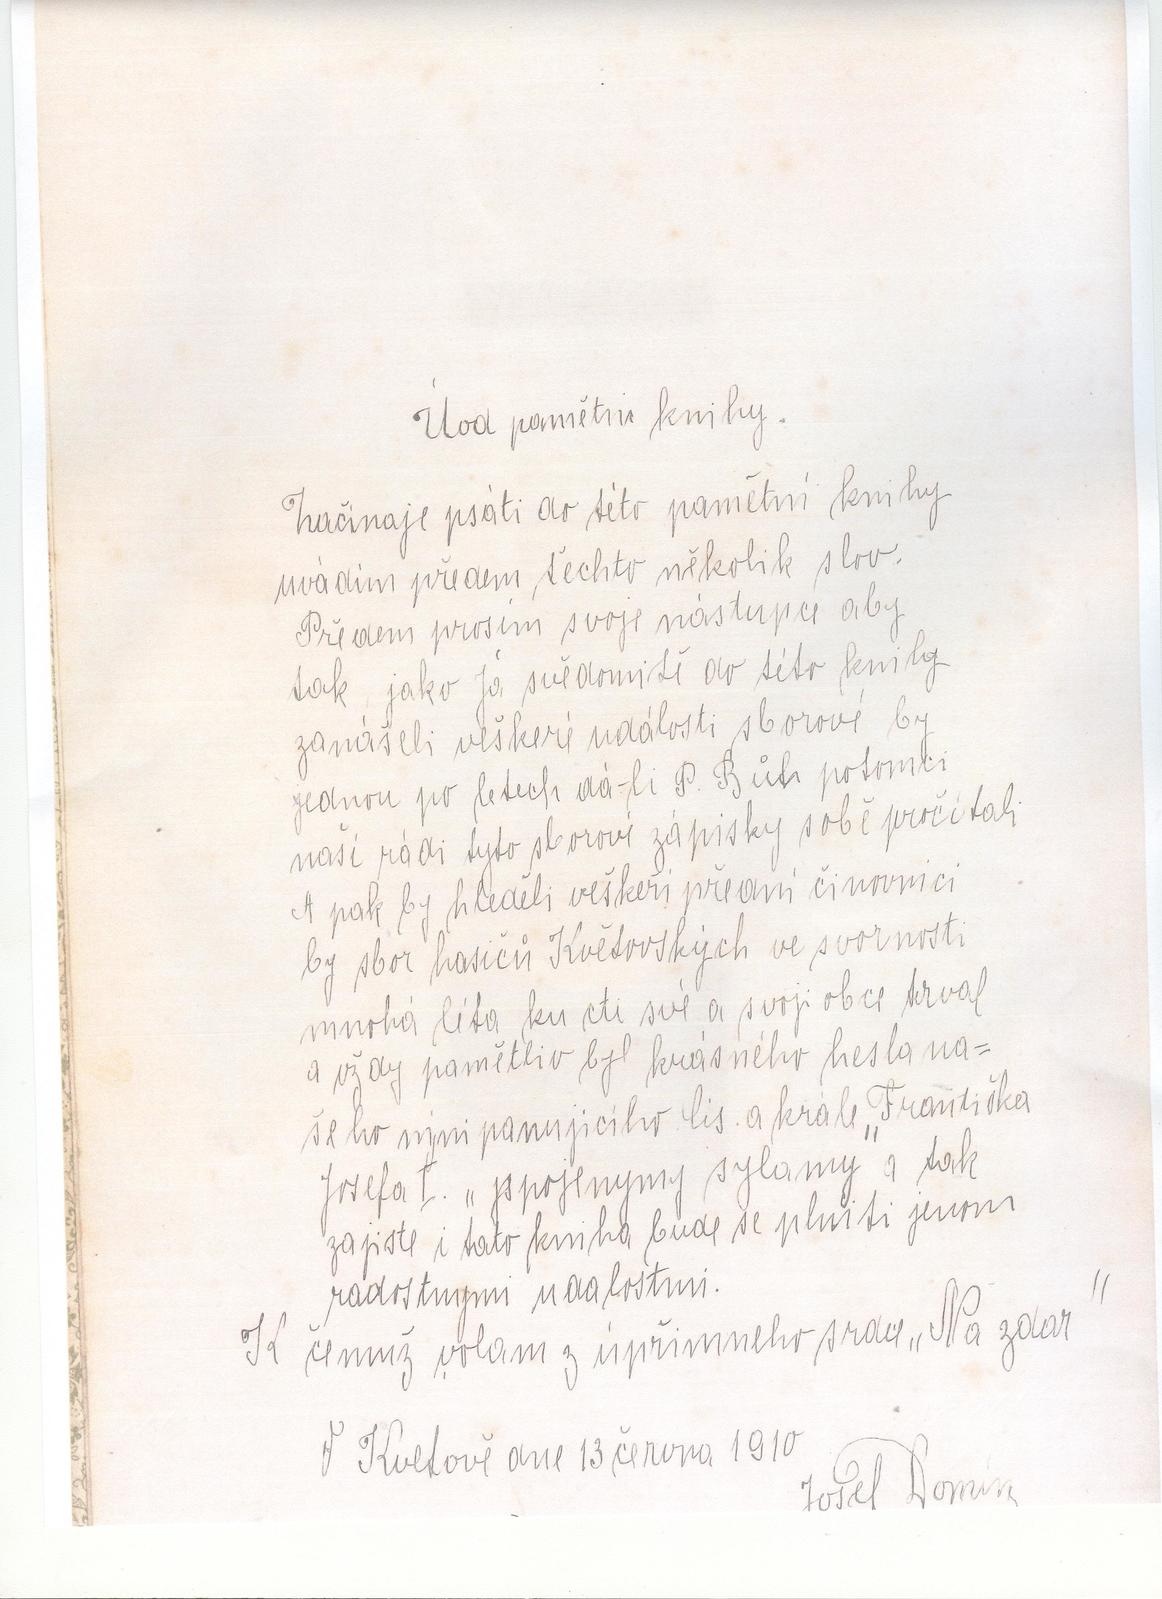 Úod pamětni knihy.
Začinaje psáti do této pamětní knihy
uvádim předem těchto několik slov.
Předem prosím svoje nástupce aby
tak jako Já svědomitě do této knihy
zanášeli veškeré události sborové by
jednou po letech dá-li P. Bůh potomci
naši rádi tyto sborové zápisky sobě pročítali
A pak by hleděli veškeří předni činovnici
by sbor hasičů Květovských ve svornosti
mnohá léta ku cti své a svoji obce trval
a vždy pamětliv byl krásného hesla na=
šeho nyni panujiciho Cis. a krále „Františka
Josefa I. „spojenymy sylamy" a tak
zajiste i tato kniha bude se plniti jenom
radostnymi udalostmi.
K čemuž volam z úpřimneho srdce „Na zdar"
V Květově dne 13 června 1910
Josef Domin